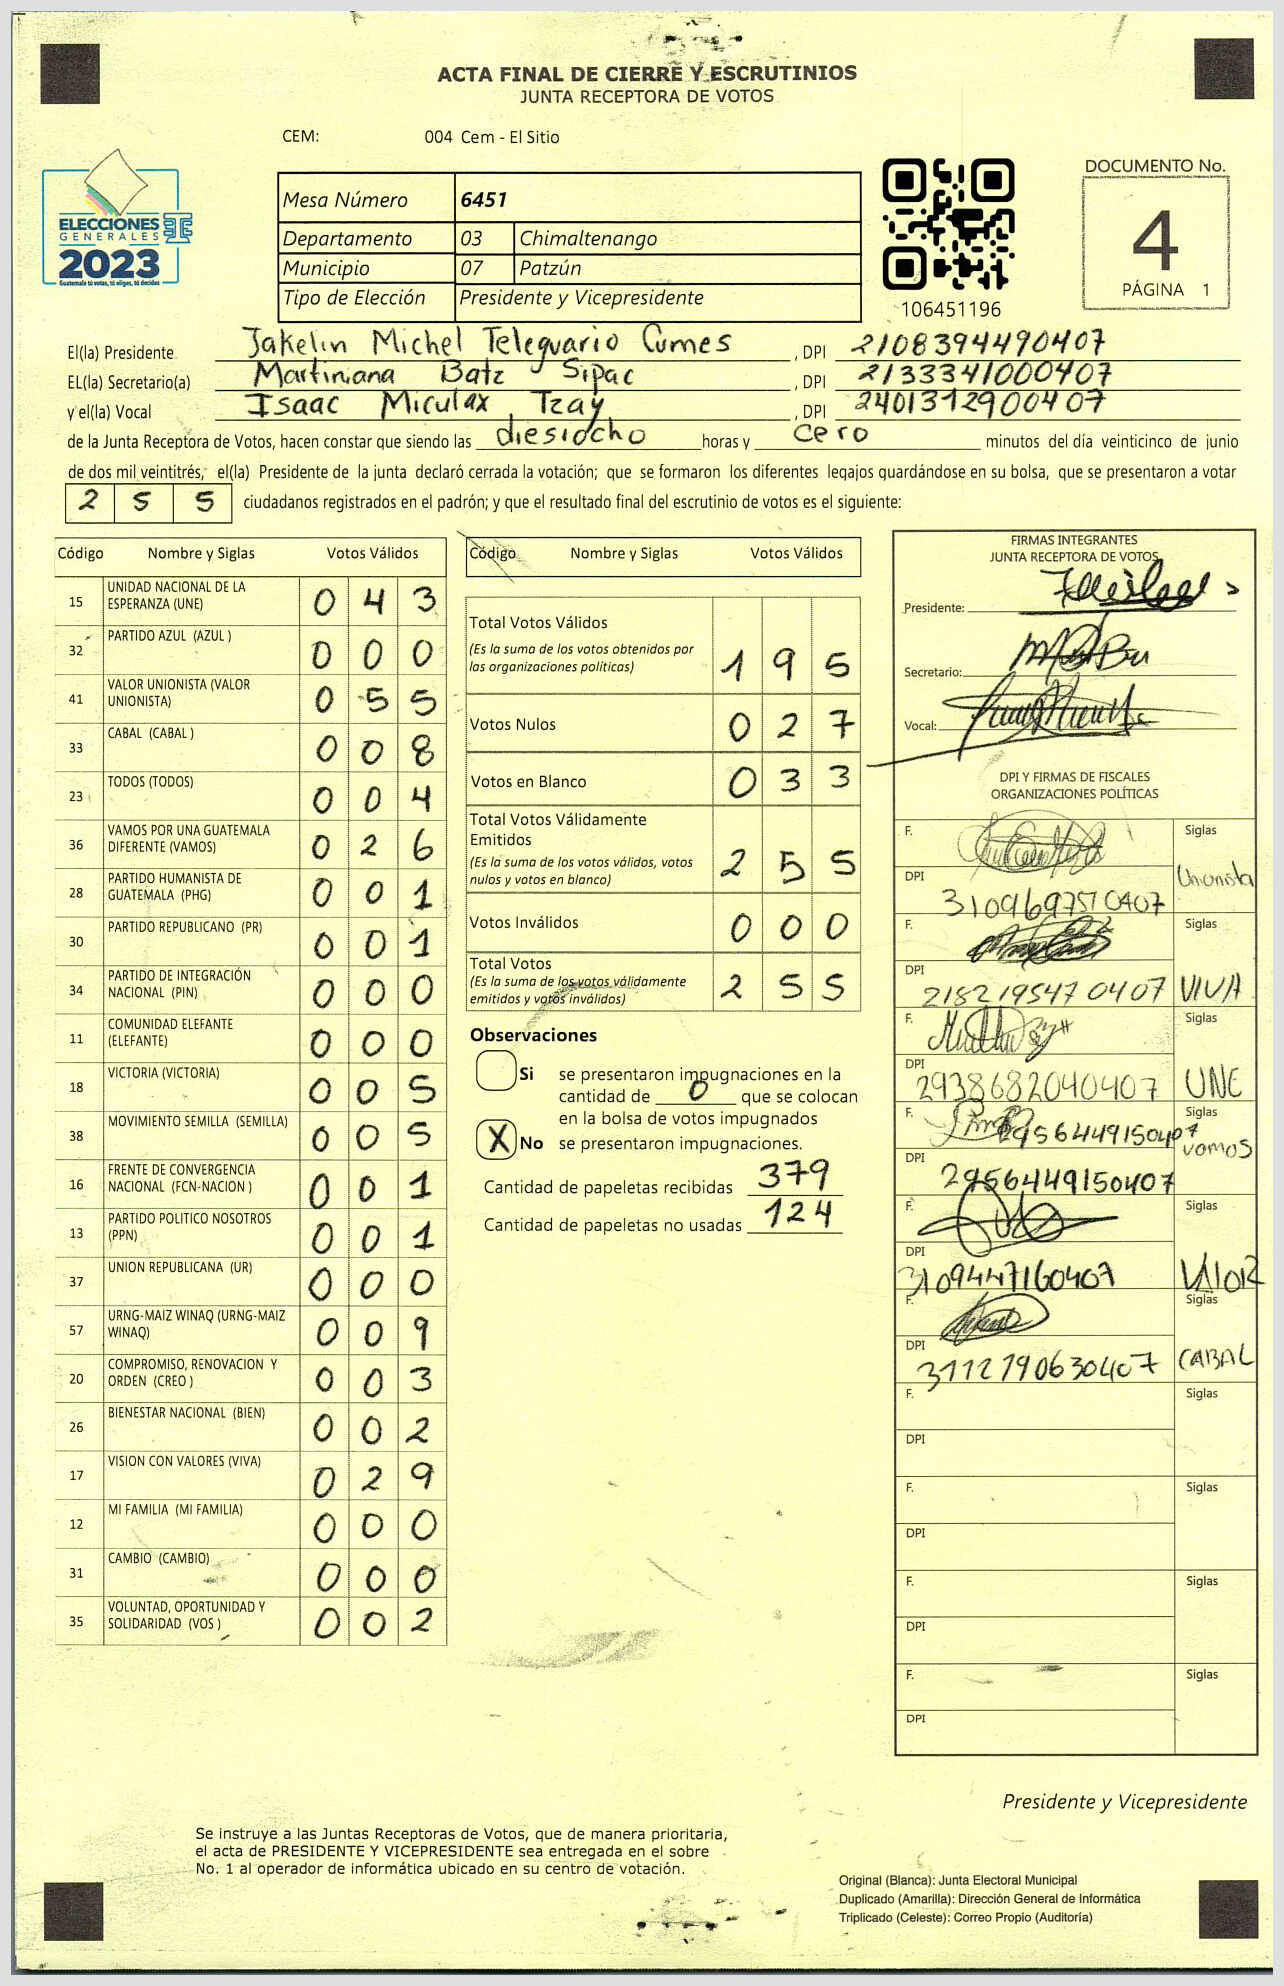 ACTA FINAL DE CIERRE Y ESCRUTINIOS
JUNTA RECEPTORA DE VOTOS
CEM: 004 Cem - El Sitio
ELECCIONES
GENERALES
2023
Guatemala tú votas, tú eliges, tú decides
TSE
Mesa Número 6451
Departamento 03 Chimaltenango
Municipio 07 Patzún
Tipo de Elección Presidente y Vicepresidente
106451196
DOCUMENTO No.
4
PÁGINA 1
El(la) Presidente Jakelin Michel Teleguario Cumes , DPI 2108394490407
EL(la) Secretario(a) Martiniana Batz Sipac , DPI 2133341000407
y el(la) Vocal Isaac Miculax Tzay , DPI 2401312900407
de la Junta Receptora de Votos, hacen constar que siendo las diesiocho horas y cero minutos del día veinticinco de junio
de dos mil veintitrés, el(la) Presidente de la junta declaró cerrada la votación; que se formaron los diferentes legajos guardándose en su bolsa, que se presentaron a votar
2 5 5 ciudadanos registrados en el padrón; y que el resultado final del escrutinio de votos es el siguiente:
Código Nombre y Siglas Votos Válidos
15 UNIDAD NACIONAL DE LA ESPERANZA (UNE) 0 4 3
32 PARTIDO AZUL (AZUL ) 0 0 0
41 VALOR UNIONISTA (VALOR UNIONISTA) 0 5 5
33 CABAL (CABAL ) 0 0 8
23 TODOS (TODOS) 0 0 4
36 VAMOS POR UNA GUATEMALA DIFERENTE (VAMOS) 0 2 6
28 PARTIDO HUMANISTA DE GUATEMALA (PHG) 0 0 1
30 PARTIDO REPUBLICANO (PR) 0 0 1
34 PARTIDO DE INTEGRACIÓN NACIONAL (PIN) 0 0 0
11 COMUNIDAD ELEFANTE (ELEFANTE) 0 0 0
18 VICTORIA (VICTORIA) 0 0 5
38 MOVIMIENTO SEMILLA (SEMILLA) 0 0 5
16 FRENTE DE CONVERGENCIA NACIONAL (FCN-NACION ) 0 0 1
13 PARTIDO POLITICO NOSOTROS (PPN) 0 0 1
37 UNION REPUBLICANA (UR) 0 0 0
57 URNG-MAIZ WINAQ (URNG-MAIZ WINAQ) 0 0 9
20 COMPROMISO, RENOVACION Y ORDEN (CREO ) 0 0 3
26 BIENESTAR NACIONAL (BIEN) 0 0 2
17 VISION CON VALORES (VIVA) 0 2 9
12 MI FAMILIA (MI FAMILIA) 0 0 0
31 CAMBIO (CAMBIO) 0 0 0
35 VOLUNTAD, OPORTUNIDAD Y SOLIDARIDAD (VOS ) 0 0 2
Código Nombre y Siglas Votos Válidos
Total Votos Válidos
(Es la suma de los votos obtenidos por
las organizaciones políticas) 1 9 5
Votos Nulos 0 2 7
Votos en Blanco 0 3 3
Total Votos Válidamente
Emitidos
(Es la suma de los votos válidos, votos
nulos y votos en blanco) 2 5 5
Votos Inválidos 0 0 0
Total Votos
(Es la suma de los votos válidamente
emitidos y votos inválidos) 2 5 5
Observaciones
Si se presentaron impugnaciones en la
cantidad de 0 que se colocan
en la bolsa de votos impugnados
X No se presentaron impugnaciones.
Cantidad de papeletas recibidas 379
Cantidad de papeletas no usadas 124
FIRMAS INTEGRANTES
JUNTA RECEPTORA DE VOTOS
Presidente:
Secretario:
Vocal:
DPI Y FIRMAS DE FISCALES
ORGANIZACIONES POLÍTICAS
F. Siglas
DPI 3109697570407 Unionista
F. Siglas
DPI 2182195470407 VIVA
F. Siglas
DPI 2938682040407 UNE
F. 2956449150407 Siglas
DPI 2956449150407 vamos
F. Siglas
DPI 3109447160407 VALOR
F. Siglas
DPI 3112790630407 CABAL
F. Siglas
DPI
F. Siglas
DPI
F. Siglas
DPI
F. Siglas
DPI
Presidente y Vicepresidente
Se instruye a las Juntas Receptoras de Votos, que de manera prioritaria,
el acta de PRESIDENTE Y VICEPRESIDENTE sea entregada en el sobre
No. 1 al operador de informática ubicado en su centro de votación.
Original (Blanca): Junta Electoral Municipal
Duplicado (Amarilla): Dirección General de Informática
Triplicado (Celeste): Correo Propio (Auditoría)